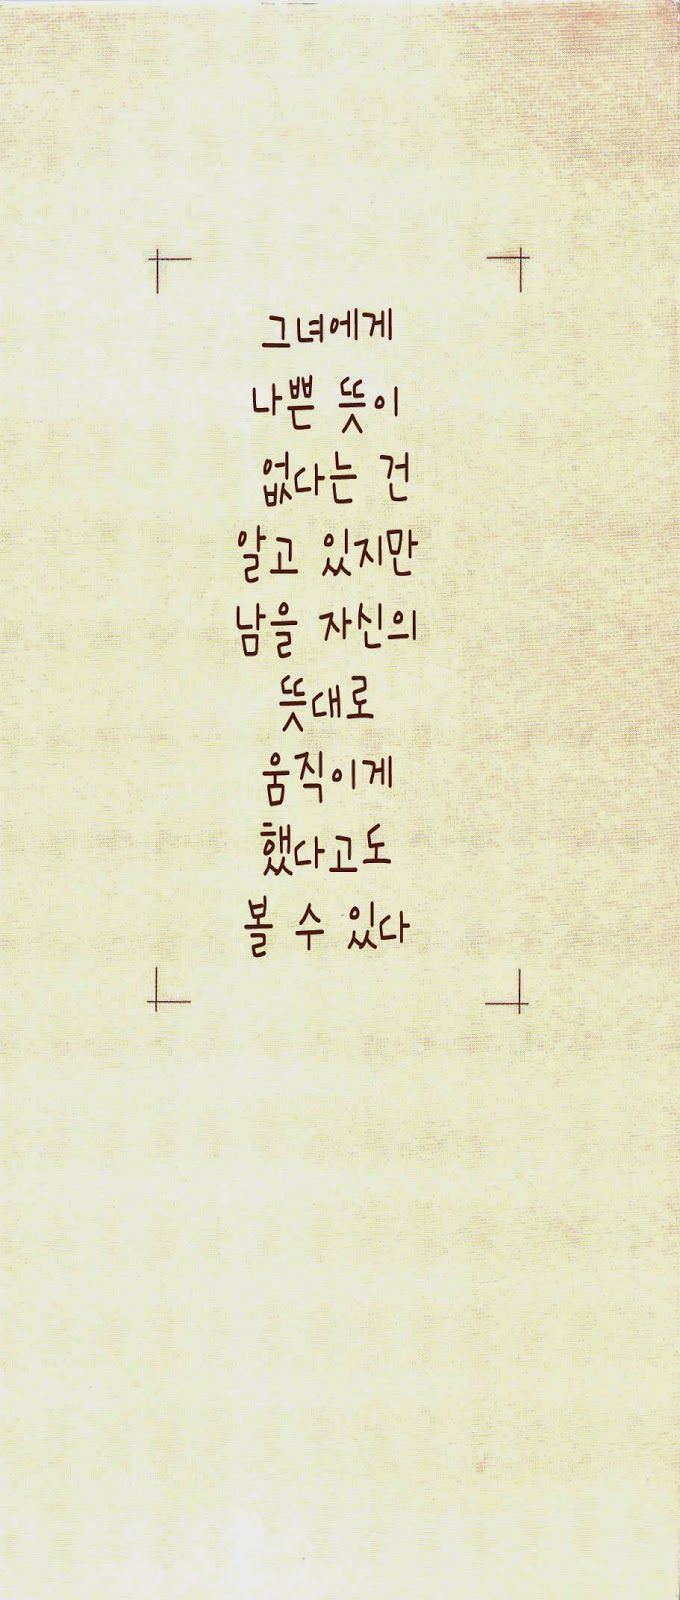 그녀에게
나쁜 뜻이
없다는 건
알고 있지만
남을 자신의
뜻대로
움직이게
했다고도
볼 수 있다